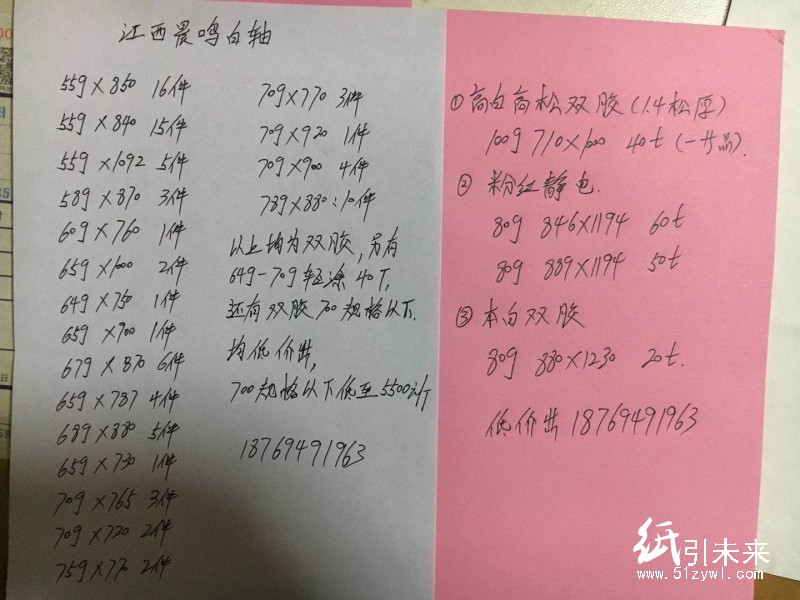 江西晨鸣白轴
55g×850 16件
55g×840 15件
55g×1092 5件
58g×870 3件
60g×760 1件
65g×1000 2件
64g×750 1件
65g×900 1件
67g×870 6件
65g×787 4件
68g×880 5件
65g×730 1件
70g×765 3件
70g×720 2件
75g×770 2件
70g×770 3件
70g×920 1件
70g×900 4件
78g×880:10件
以上均为双胶,另有
64g-70g轻涂40T,
还有双胶700规格以下.
均低价出,
700规格以下低至5500元/T
18769491963
①高白高松双胶(1.4松厚)
100g 710×1000 40t(一等品).
②粉红静电.
80g 846×1194 60t
80g 889×1194 50t
③本白双胶
80g 880×1230 20t.
低价出18769491963
纸引未来
www.51zywl.com